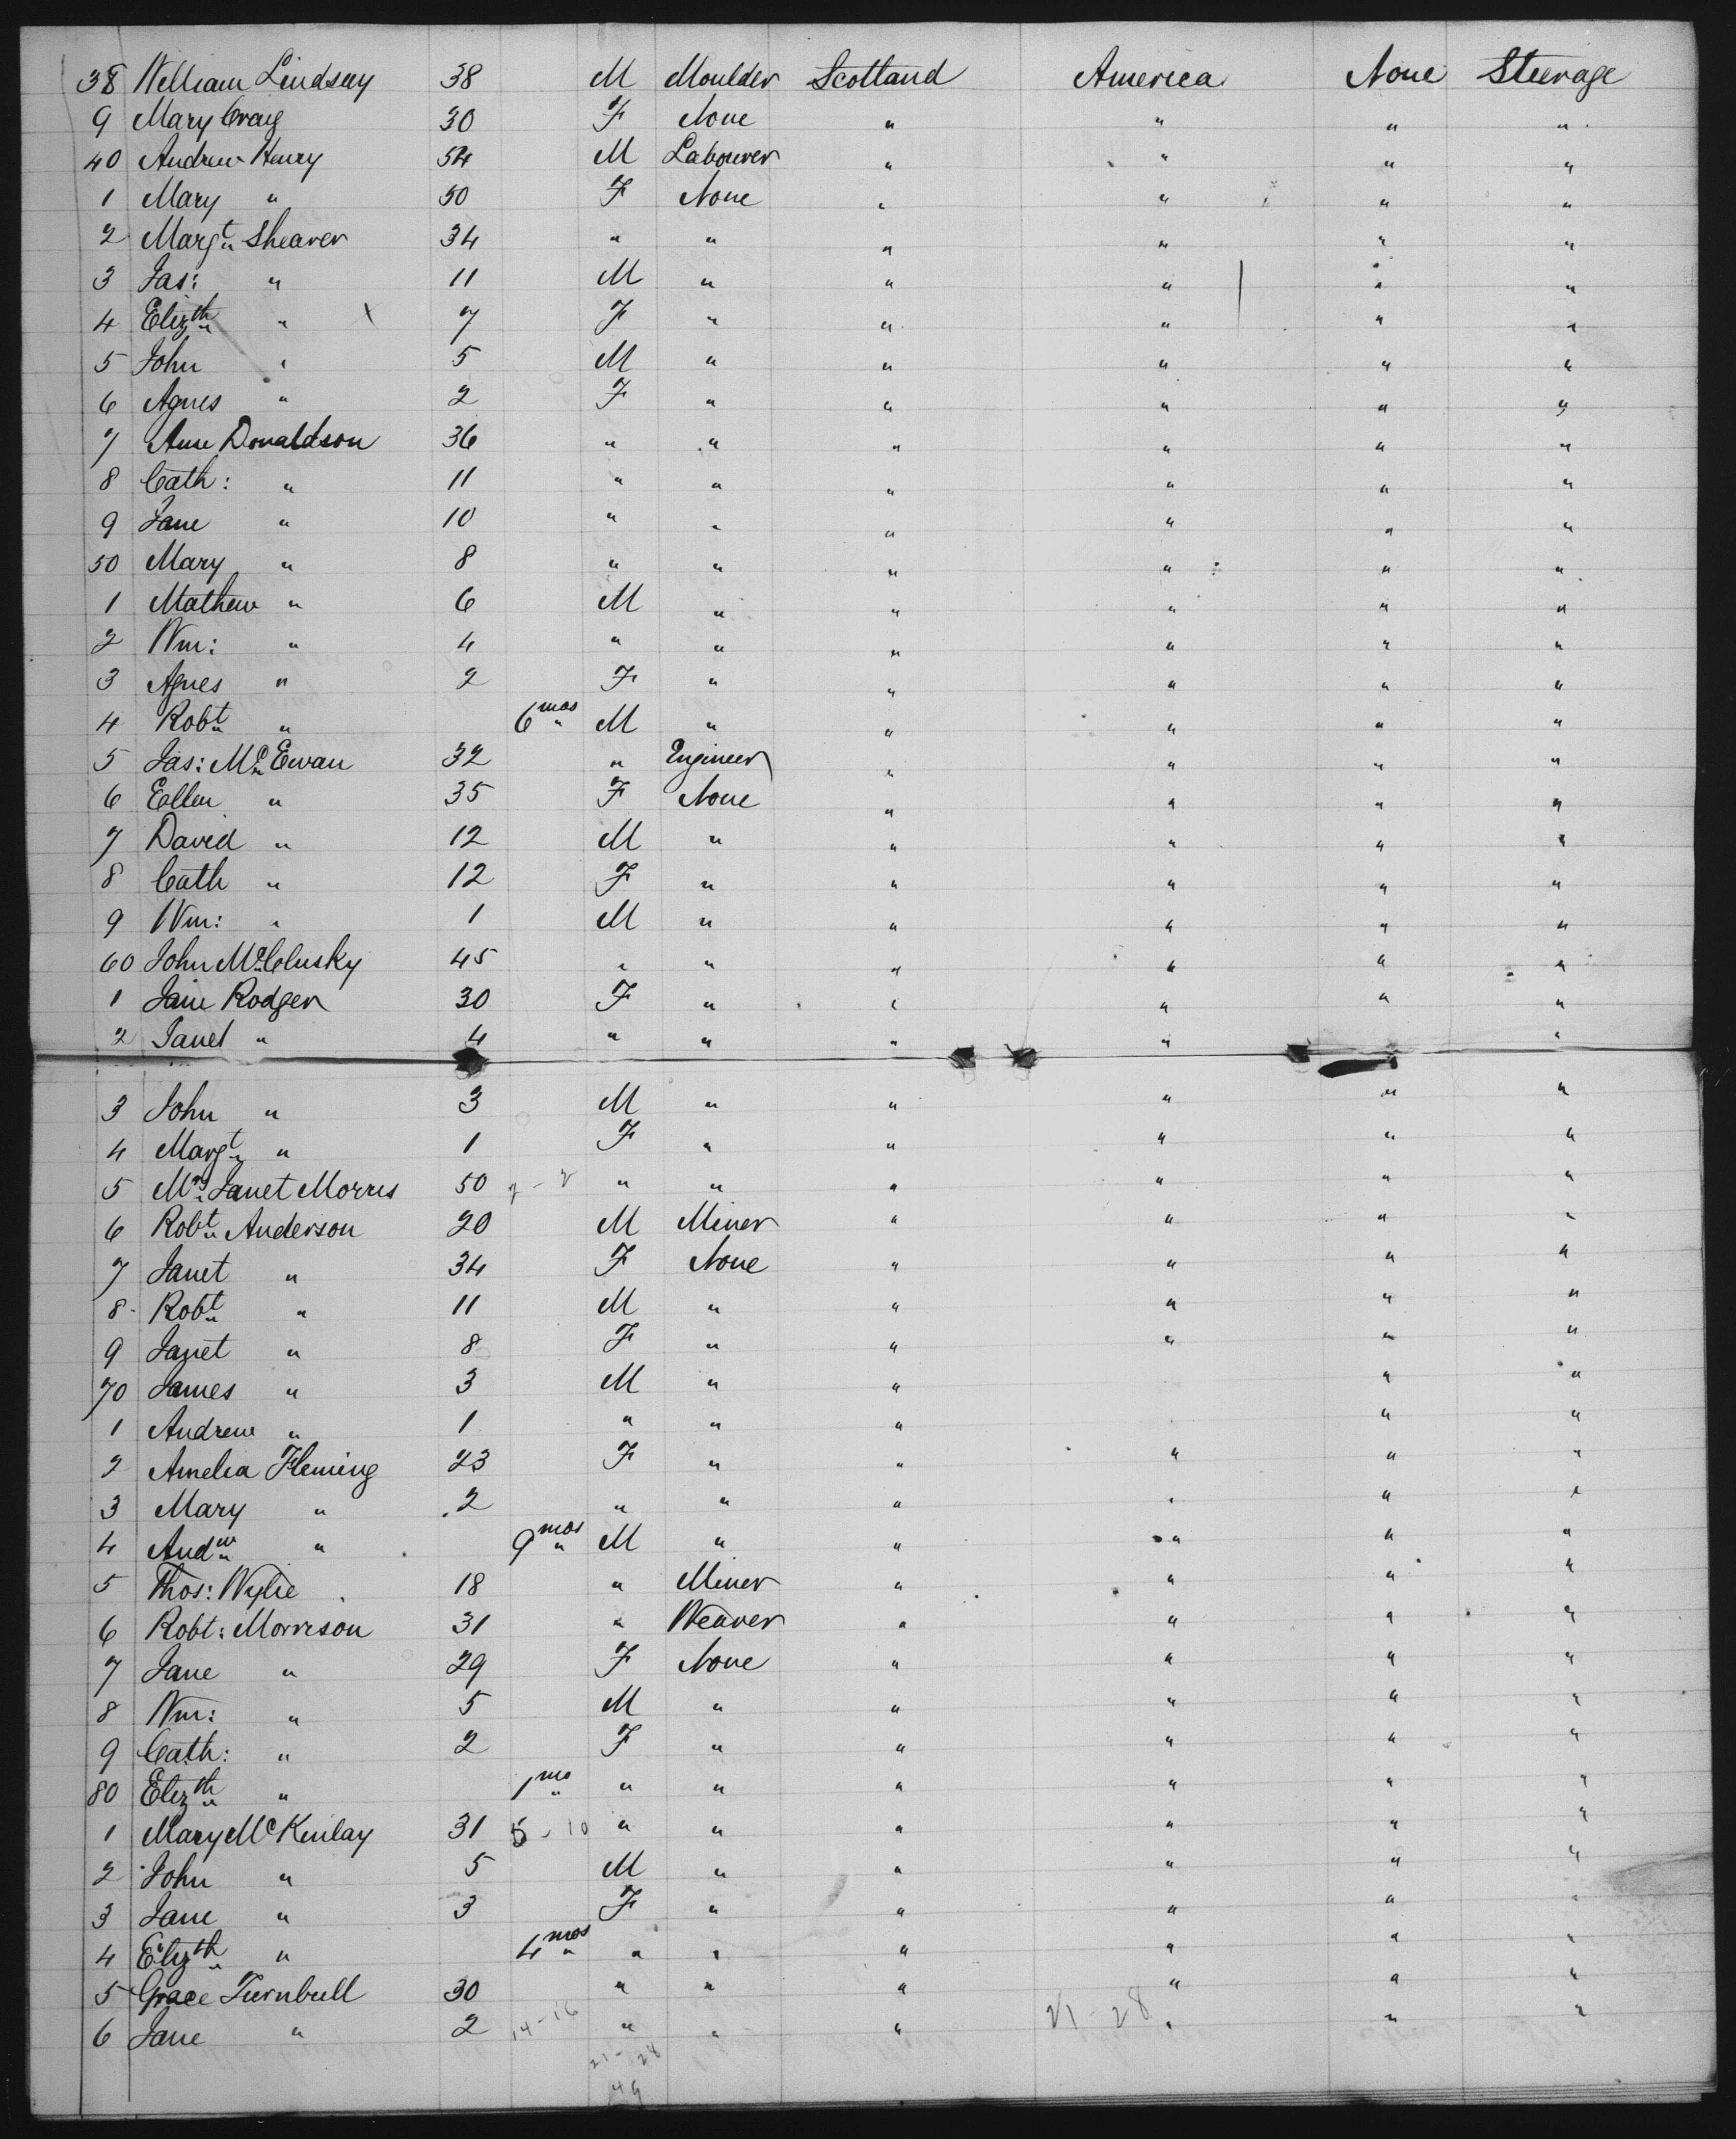 38 William Lindsay 38 M Moulder Scotland America None Steerage
9 Mary Craig 30 F None " " " "
40 Andrew Henry 54 M Labourer " " " "
1 Mary " 50 F None " " " "
2 Margt Shearer 34 " " " " " "
3 Jas: " 11 M " " " " "
4 Elizth " 7 F " " " " "
5 John " 5 M " " " " "
6 Agnes " 2 F " " " " "
7 Ann Donaldson 36 " " " " " "
8 Cath: " 11 " " " " " "
9 Jane " 10 " " " " " "
50 Mary " 8 " " " " " "
1 Mathew " 6 M " " " " "
2 Wm: " 4 " " " " " "
3 Agnes " 2 F " " " " "
4 Robt " 6 mos M " " " " "
5 Jas: Mc Ewan 32 " Engineer " " " "
6 Ellen " 35 F None " " " "
7 David " 12 M " " " " "
8 Cath " 12 F " " " " "
9 Wm: " 1 M " " " " "
60 John McClusky 45 " " " " " "
1 Jane Rodger 30 F " " " " "
2 Janet " 4 " " " " "
3 John " 3 M " " " " "
4 Margt " 1 F " " " " "
5 Mrs Janet Morris 50 " " " " " "
6 Robt Anderson 20 M Miner " " " "
7 Janet " 34 F None " " " "
8 Robt " 11 M " " " " "
9 Janet " 8 F " " " " "
70 James " 3 M " " " "
1 Andrew " 1 " " " " "
2 Amelia Fleming 23 F " " " " "
3 Mary " 2 " " " " " "
4 Andw " 9 mos M " " " " "
5 Thos: Wylie 18 " Miner " " " "
6 Robt: Morrison 31 " Weaver " " " "
7 Jane " 29 F None " " " "
8 Wm: " 5 M " " " " "
9 Cath: " 2 F " " " " "
80 Elizth " 1 mo " " " " " "
1 Mary McKinlay 31 5 - 10 " " " " " "
2 John " 5 M " " " " "
3 Jane " 3 F " " " " "
4 Elizth " 4 mos " " " " " "
5 Grace Turnbull 30 " " " " " "
6 Jane " 2 14-16 " " " 21-28 " " "
21-28
49